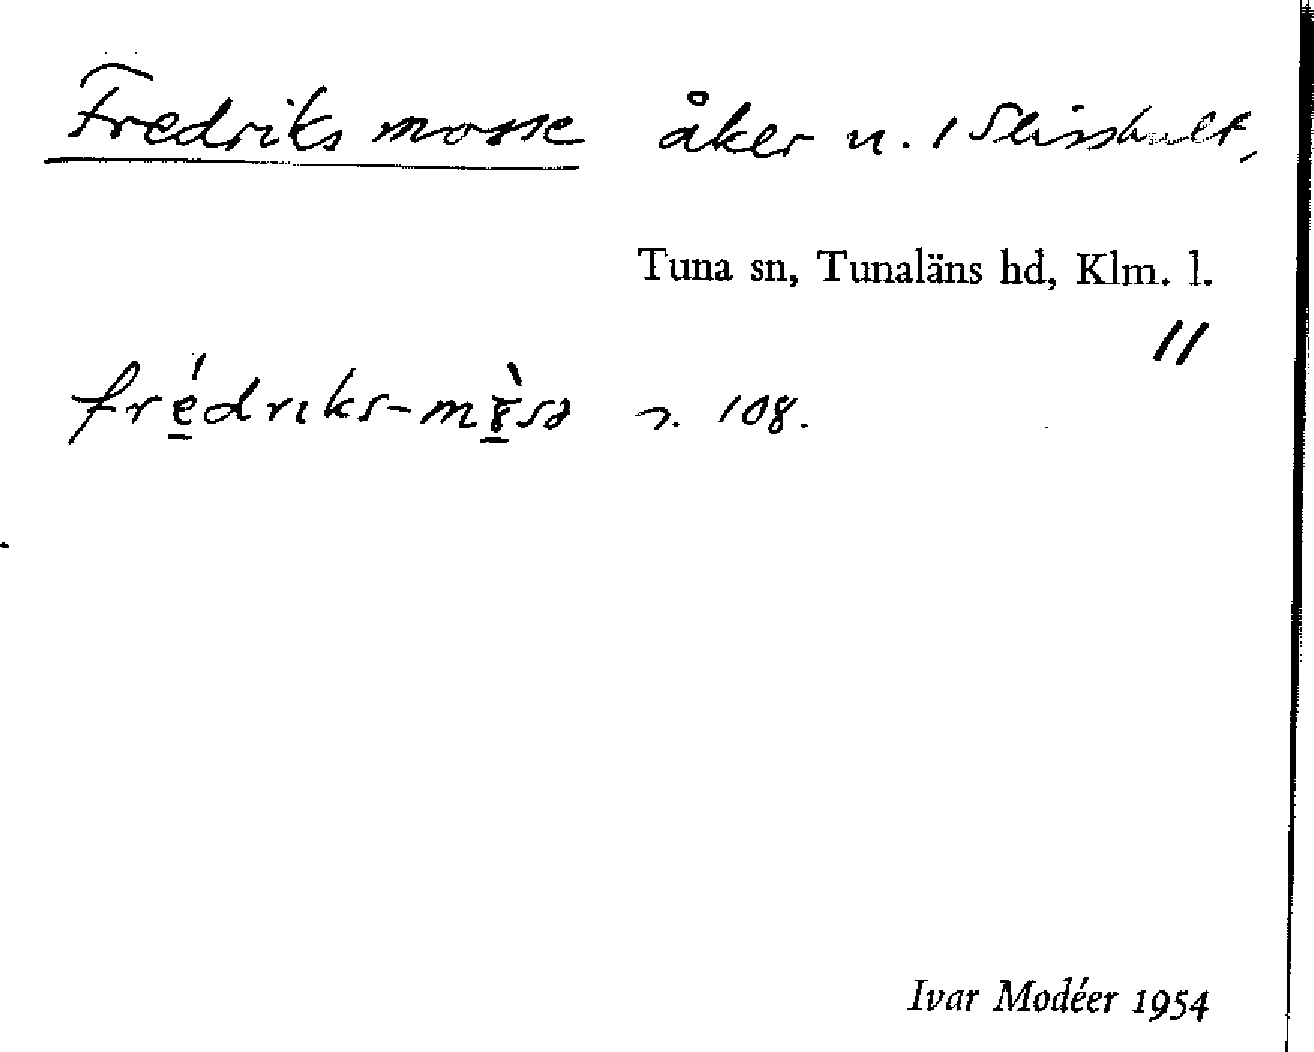 Fredriks mosse åker u. 1 Slisshult,
Tuna sn, Tunaläns hd, Klm. l.
11
frédriks- s. 108.
Ivar Modéer 1954